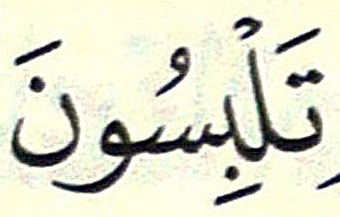 تَلْبِسُونَ